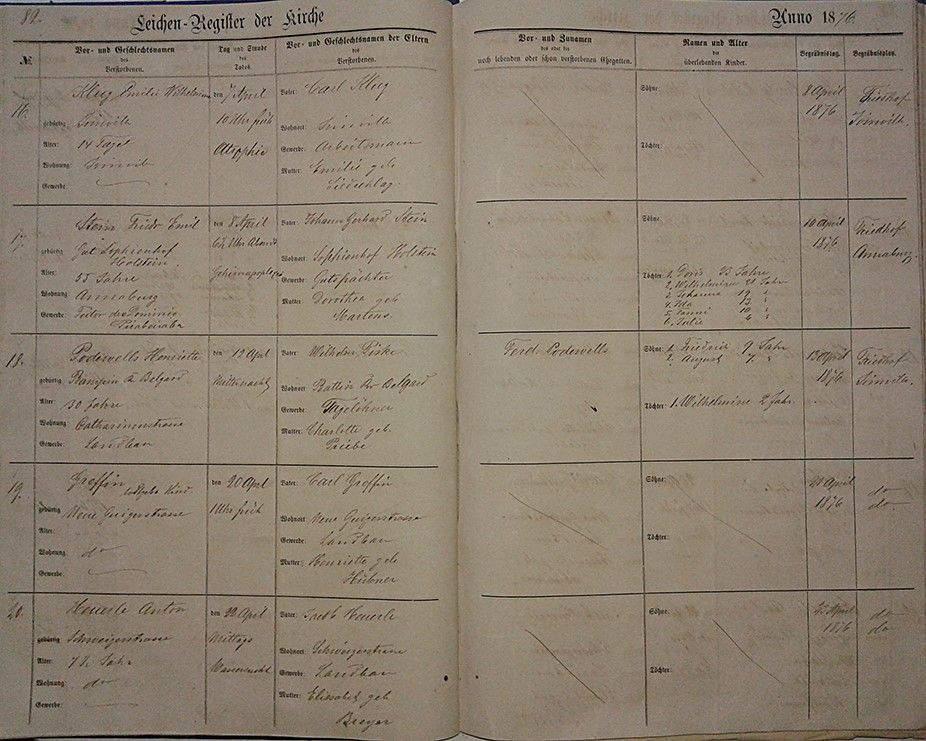 82.
Leichen-Register der Kirche
Anno 1876
№
Vor- und Geschlechtsnamen
des
Verstorbenen.
Tag und Stunde
des
Todes.
Vor- und Geschlechtsnamen der Eltern
des
Verstorbenen.
Vor- und Zunamen
des oder der
noch lebenden oder schon verstorbenen Ehegatten.
Namen und Alter
der
überlebenden Kinder.
Begräbnißtag.
Begräbnißplatz.
16.
Klug Emilie Wilhelmine
gebürtig
Alter: 14 Tage
Wohnung:
Gewerbe:
den 7 April
10 Uhr früh
Atrophie
Vater: Carl Klug
Wohnort:
Gewerbe: Arbeitsmann
Mutter: Emilie geb
Söhne:
Töchter:
8 April
1876
Friedhof
17.
Stein Friedr Emil
gebürtig Gut Sophienhof
Holstein
Alter: 55 Jahre
Wohnung: Annaburg
Gewerbe:
den 8 April
Uhr Abends
Vater: Johann Gerhard Stein
Wohnort: Sophienhof Holstein
Gewerbe: Gutspächter
Mutter: Dorothea geb
Martens
Söhne
Töchter 1. Doris 23 Jahre
2. Wilhelmine 21 Jahr
3. Johanna 19 "
4. Ida 13 "
5. Fanni 10 "
6. Julie 6 "
10 April
1876
Friedhof
Annaburg
18.
Podewells Henriette
gebürtig Belgard
Alter: 30 Jahre
Wohnung: Catharinenstrasse
Gewerbe: Landbau
den 12 April
Mitternacht
Vater Wilhelm
Wohnort: Belgard
Gewerbe: Tagelöhner
Mutter: Charlotte geb.
Priebe
Ferd. Podewells
Söhne 1. Friedrich 9 Jahr
2. August 7 "
Töchter: 1. Wilhelmine 2 Jahr.
13 April
1876
Friedhof
19.
Greffin todtgeb Kind
gebürtig Neue Geigerstrasse
Alter:
Wohnung: do
Gewerbe:
den 20 April
1 Uhr früh
Vater: Carl Greffin
Wohnort Neue Geigerstrasse
Gewerbe: Landbau
Mutter: Henriette geb
Hübner
Söhne:
Töchter:
April
1876
do
do
20.
Heuerle Anton
gebürtig Schweizerstrasse
Alter: Jahr
Wohnung: do
Gewerbe:
den 22 April
Mittags
Vater: Jacob Heuerle
Wohnort: Schweizerstrasse
Gewerbe: Landbau
Mutter: Elisabet geb
Breyer
Söhne:
Töchter:
23 April
1876
do
do